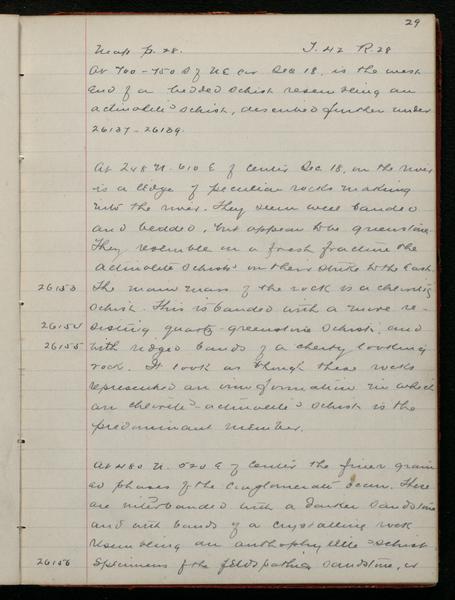 29
Map p. 28. T. 42 R. 28
At 700-750 S of NE cor Sec 18, is the west
end of a bedded schist resembling an
actinolitic schist, described further under
26137-26139.
At 248 N. 610 E of Center Sec. 18, on the river
is a ledge of peculiar rocks making
into the river. They seem well banded
and bedded, but appear to be greenstone.
They resemble on a fresh fracture the
actinolite schists on there strike to the East.
26153 The main mass of the rock is a chloritic
schist. This is banded with a more re-
26154 sisting quartz-greenstone schist, and
26155 with ridged bands of a cherty looking
rock. It look as though these rocks
represented an iron formation in which
an chlorite-actinolitic schist is the
predominant member.
At 480 N. 520 E of Center the finer grain
ed phases of the Conglomerate occur. There
are interbanded with a darker sandstone
and with bands of a crystalline rock
resembling an anthophyllite schist
26156 Specimens of the feldspathic sandstone, is